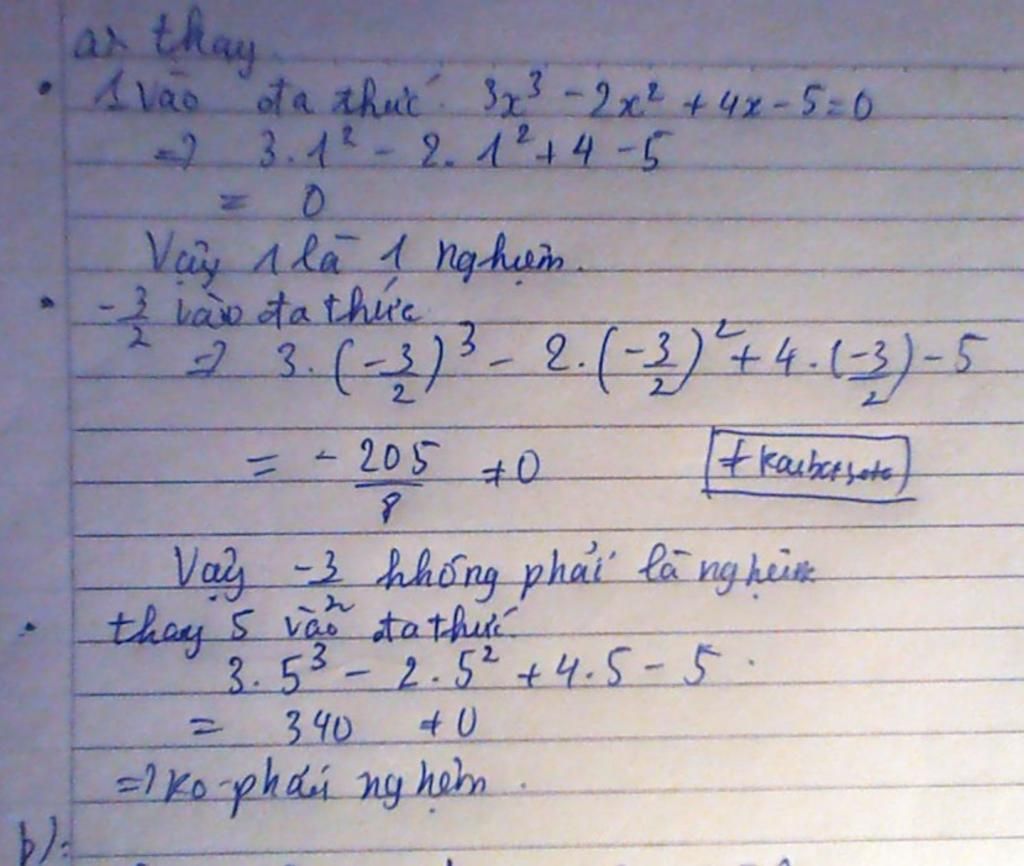 a> thay
1 vào đa thức 3x³ - 2x² + 4x - 5 = 0
=> 3.1² - 2.1² + 4 - 5
= 0
Vậy 1 là 1 nghiệm.
-3/2 vào đa thức
=> 3.(-3/2)³ - 2.(-3/2)² + 4.(-3/2) - 5
= -205/8 ≠ 0
Vậy -3/2 không phải là nghiệm
thay 5 vào đa thức
3.5³ - 2.5² + 4.5 - 5
= 340 ≠ 0
=> ko phải nghiệm.
b):